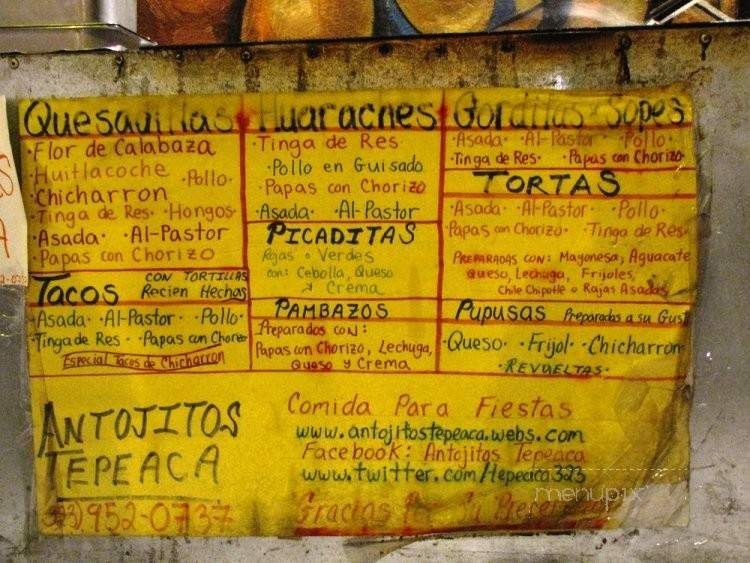 Quesadillas
·Flor de Calabaza
·Huitlacoche
·Pollo·
·Chicharron
·Tinga de Res· ·Hongos·
·Asada· ·Al-Pastor
·Papas con Chorizo
Tacos
con tortillas
Recien Hechos
·Asada· ·Al-Pastor· ·Pollo·
·Tinga de Res· ·Papas con Chorizo
Especial Tacos de Chicharron
Huaraches
·Tinga de Res·
·Pollo en Guisado
·Papas con Chorizo
·Asada· ·Al-Pastor
PICADITAS
Rojas o Verdes
con: Cebolla, Queso
y Crema
PAMBAZOS
Preparados con:
Papas con Chorizo, Lechuga,
Queso y Crema
Gorditas · Sopes
·Asada· ·Al-Pastor· ·Pollo·
·Tinga de Res· ·Papas con Chorizo·
TORTAS
·Asada· ·Al-Pastor· ·Pollo·
·Papas con Chorizo· ·Tinga de Res·
Preparadas con: Mayonesa, Aguacate
Queso, Lechuga, Frijoles,
Chile Chipotle o Rajas Asadas
Pupusas Preparadas a su Gust
·Queso· ·Frijol· ·Chicharron·
·Revueltas·
ANTOJITOS
TEPEACA
(323)952-0737
Comida Para Fiestas
www.antojitostepeaca.webs.com
Facebook: Antojitos Tepeaca
www.twitter.com/tepeaca323
Gracias Por Su Preferencia
menupix